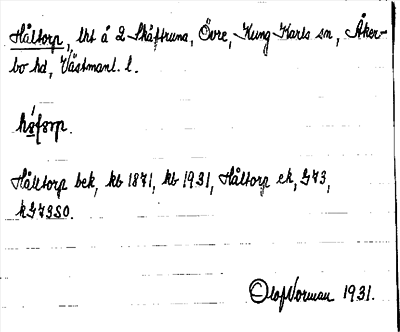 Håltorp, lht å 2 Skäftruna, Övre, Kung Karls sn, Åker-
bo hd, Västmanl. l.
Hålltorp bek, kb 1871, kb 1931, Håltorp ek, G73,
kG73SO.
Olof Norman 1931.